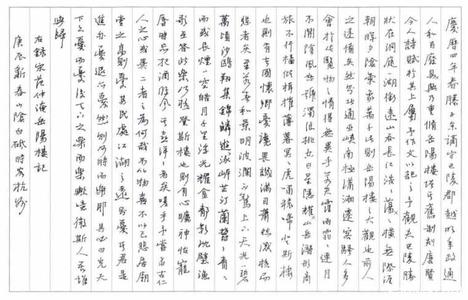 慶曆四年春滕子京謫守巴陵郡越明年政通
人和百廢具興乃重修岳陽樓增其舊制刻唐賢
今人詩賦於其上屬予作文以記之予觀夫巴陵勝
狀在洞庭一湖銜遠山吞長江浩浩湯湯橫無際涯
朝暉夕陰氣象萬千此則岳陽樓之大觀也前人
之述備矣然則北通巫峽南極瀟湘遷客騷人多
會於此覽物之情得無異乎若夫霪雨霏霏連月
不開陰風怒號濁浪排空日星隱耀山岳潛形商
旅不行檣傾楫摧薄暮冥冥虎嘯猿啼登斯樓
也則有去國懷鄉憂讒畏譏滿目蕭然感極而
悲者矣至若春和景明波瀾不驚上下天光一碧
萬頃沙鷗翔集錦鱗游泳岸芷汀蘭郁郁青青
而或長煙一空皓月千里浮光耀金靜影沉璧漁
歌互答此樂何極登斯樓也則有心曠神怡寵
辱皆忘把酒臨風其喜洋洋者矣嗟夫予嘗求古仁
人之心或異二者之為何哉不以物喜不以己悲居廟
堂之高則憂其民處江湖之遠則憂其君是
進亦憂退亦憂然則何時而樂耶其必曰先天
下之憂而憂後天下之樂而樂歟噫微斯人吾誰
與歸
右錄宋范仲淹岳陽樓記
庚辰新春山陰白砥時客杭州